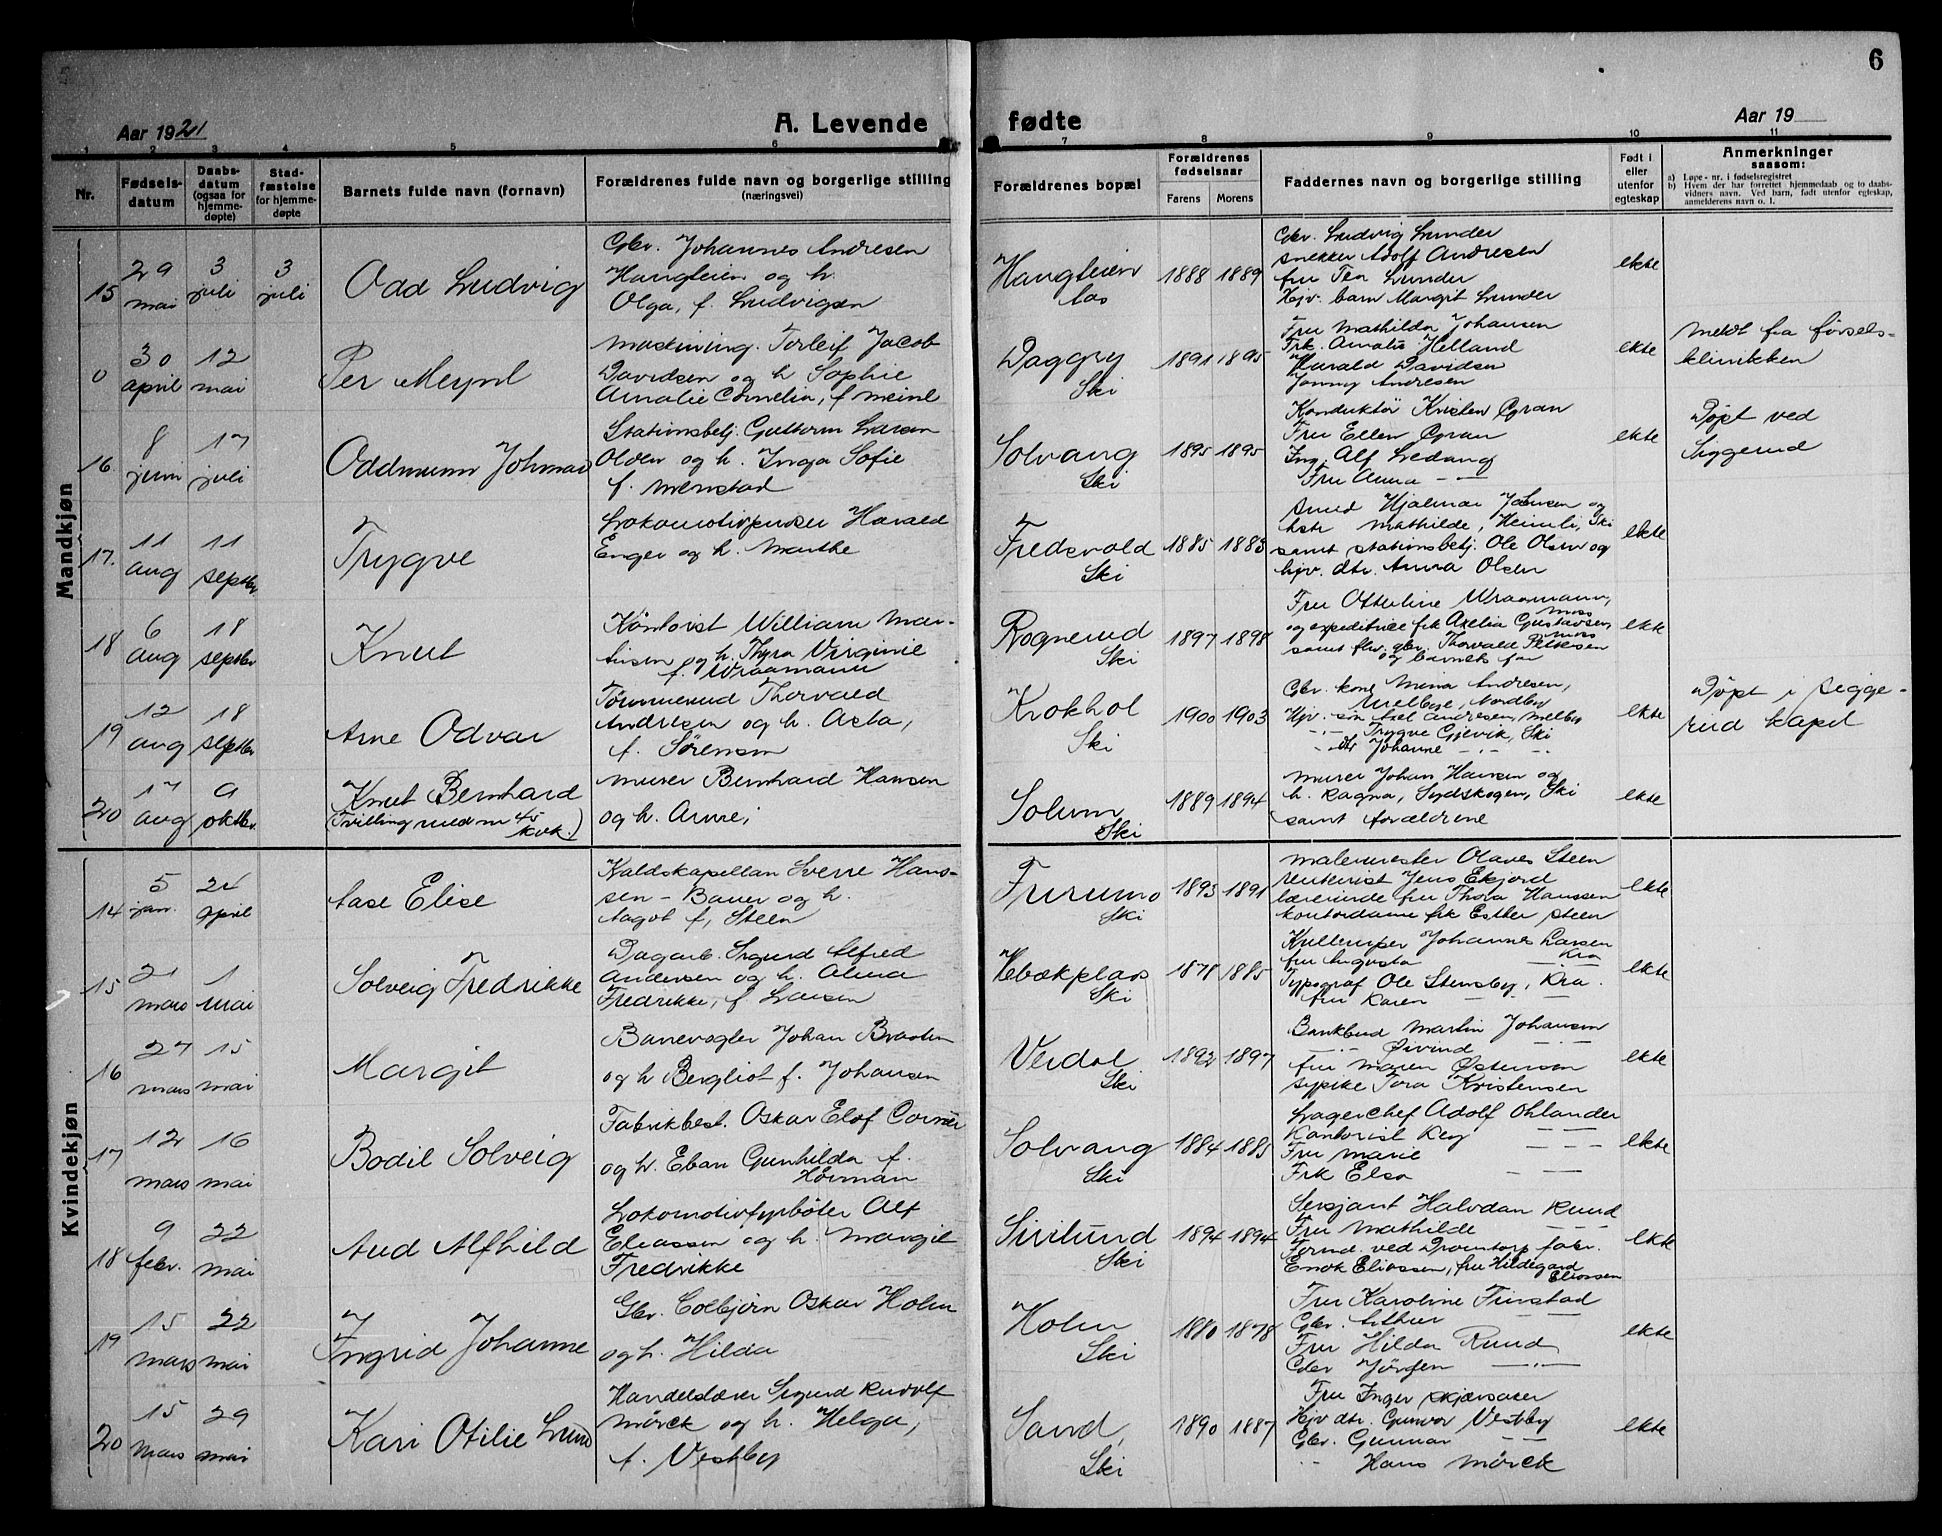 6
Aar 1921
A. Levende
fødte
Aar 19
1 2 3 4 5 6 7 8 9 10 11
Nr.
Fødsels-
datum
Daabs-
datum
(ogsaa for
hjemme-
døpte)
Stad-
fæstelse
for hjemme-
døpte
Barnets fulde navn (fornavn)
Forældrenes fulde navn og borgerlige stilling
(næringsvei)
Forældrenes bopæl
Forældrenes
fødselsaar
Farens Morens
Faddernes navn og borgerlige stilling
Født i
eller
utenfor
egteskap
Anmerkninger
saasom:
a) Løpe-nr. i fødselsregistret
b) Hvem der har forrettet hjemmedaab og to daabs-
vidners navn. Ved barn, født utenfor egteskap,
anmelderens navn o. l.
Mandkjøn
15
29
mai
3
juli
3
juli
Odd Ludvig
Gbr. Johannes Andresen
Haugteien og h.
Olga, f. Ludvigsen
Haugteien
Aas
1888 1889
Gbr. Ludvig Lunder
snekker Adolf Andresen
fru Tea Lunder
Hjv. barn Margit Lunder
ekte
0
30
april
12
mai
Per Meynl
Maskining. Torleif Jacob
Davidsen og h Sophie
Amalie Cornelia, f Meinl
Daggry
Ski
1891 1895
Fru Mathilda Johansen
Frk. Amalie Helland
Harald Davidsen
Jonny Andresen
ekte
Meldt fra førsels-
klinikken
16.
8
juni
17
juli
Oddmunn Johmar
Stationsbetj. Guttorm Larsen
Older og h. Inga Sofie
f. Menstad
Solvang
Ski
1895 1895
Konduktør Kristen Gran
Fru Ellen Gran
Ing. Alf Ledang
Fru Anna - -
ekte
Døpt ved
Siggerud
17.
11
aug
11
septbr
Trygve
Lokomotivpusser Harald
Enger og h. Marthe
Fredsvold
Ski
1885 1883
Smed Hjalmar Johnsen og
hstr Mathilde, Heimli, Ski
samt stationsbetj. Ole Olsen og
hjv. dtr. Anna Olsen
ekte
18
6
aug
18
septbr
Knut
Kontorist William Mar-
tinsen og h. Thyra Virginie
f. Wraamann
Rognerud
Ski
1897 1898
Fru Otteline Wraamann,
Moss
og expeditrice frk Axelia Gustavsen,
Moss
samt fhv. gbr. Thorvald Pettersen
og barnets far
ekte
19
12
aug
18
septbr
Arne Odvar
Tømmermd Thorvald
Andresen og h. Asta,
f. Sørensen
Krokhol
Ski
1900 1903
Gbr. kone Mina Andresen,
Melbye, Nordby
Hjv. søn Axel Andresen, Melby
-"- Trygve Gjevik, Ski
- dtr Johanne - " - -
ekte
Døpt i Sigge-
rud kapel
20
17
aug
9
oktbr.
Knut Bernhard
(Tvilling med nr 45
kvk.)
Murer Bernhard Hansen
og h. Anne,
Solum
Ski
1889 1894
Murer Johan Hansen og
h. Ragna, Sydskogen, Ski
samt forældrene
ekte
Kvindekjøn
14
5
jan.
24
april
Aase Elise
Kaldskapellan Sverre Hans-
sen - Bauer og h.
Aagot f, Steen
Furumo
Ski
1893 1891
Malermester Olaves Steen
rentenist Jens Ekjord
lærerinde fru Thora Hanssen
kontordame frk Esther Steen
ekte
15
21
mars
1
mai
Solveig Fredrikke
Dagarb. Sigurd Alfred
Andersen og h. Alma
Fredrikke, f Larsen
Hebækplass
Ski
1878 1885
Kullemper Johannes Larsen
fru Augusta - Kra
Typograf Ole Stensby, Kra.
fru Karen - - -
ekte
16
27
mars
15
mai
Margit
Banevogter Johan Braaten
og h Bergliot f. Johansen
Verdal
Ski
1892 1897
Bankbud Martin Johansen
-"- Øivind -"-
fru Maren Østensen
sypike Tora Kristensen
ekte
17
12
mars
16
mai
Bodil Solveig
Fabrikbest. Oskar Elof Cornér
og h. Eban Gunhilda f.
Hörman
Solvang
Ski
1884 1885
Lagerchef Adolf Ohlander
Kantorist Key - -
Fru Marie - - -
Frk Elsa - -
ekte
18
9
febr.
22
mai
Aud Alfhild
Lokomotivfyrbøter Alf
Eliassen og h. Margit
Fredrikke
Sirilund
Ski
1894 1894
Sersjant Halvdan Ruud
Fru Mathilde - - -
Formd. ved Drømtorp fabr.
Enok Eliassen, fru Hildegard
Eliassen
ekte
19
15
mars
22
mai
Ingrid Johanne
Gbr. Colbjørn Oskar Holm
og h. Hilda
Holm
Ski
1880 1878
Fru Karoline Finstad
Gbr. Arthur ——
Fru Hilda Ruud
Gbr Jørgen —"—
ekte
20
15
mars
29
mai
Kari Otilie Lund
Handelslærer Sigurd Rudolf
Mørck og h. Helga,
f. Vestby
Sand,
Ski
1890 1887
Fru Inger Skjærsaker
Hjv dtr. Gunvor Vestby
Gbr. Gunnar - -
- " Hans Mørck
ekte